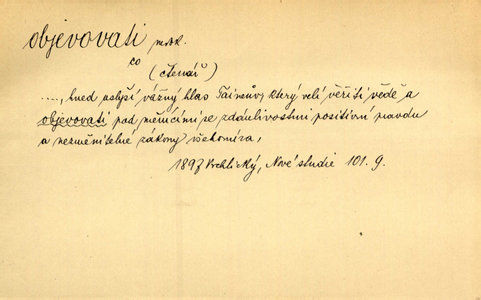 objevovati ned.
co
(čtenář)
...., hned uslyší vážný hlas Taineův, který velí věřiti vědě a
objevovati pod měnícími se zdánlivostmi positivní pravdu
a nezměnitelné zákony všekomíra,
1897 Vrchlický, Nové studie 101. 9.